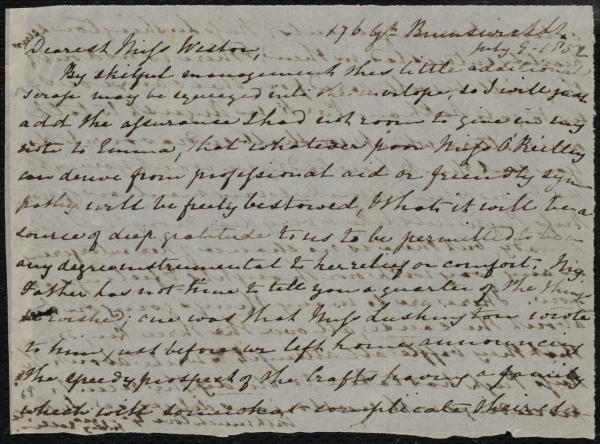 176 Gt. Brunswick St.
July 9. 1852
Dearest Miss Weston,
By skilful management this little additional
scrap may be squeezed into the envelope, so I will just
add the assurance I had not room to give in my
note to Emma, that whatever poor Miss O'Reilly
can derive from professional aid or friendly sym
pathy will be freely bestowed, & that it will be a
source of deep gratitude to us to be permitted to be in
any degree instrumental to her relief or comfort. My
Father has not time to tell you a quarter of the things
he wishes: one was that Miss Lushington wrote
to him, just before we left home, announcing
the speedy prospect of the Crafts having a family
which will somewhat complicate their